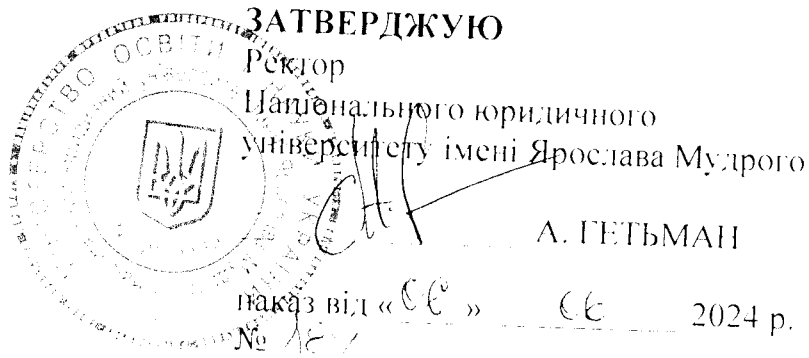 ЗАТВЕРДЖУЮ
Ректор
Національного юридичного
університету імені Ярослава Мудрого
А. ГЕТЬМАН
наказ від « » 2024 р.
№